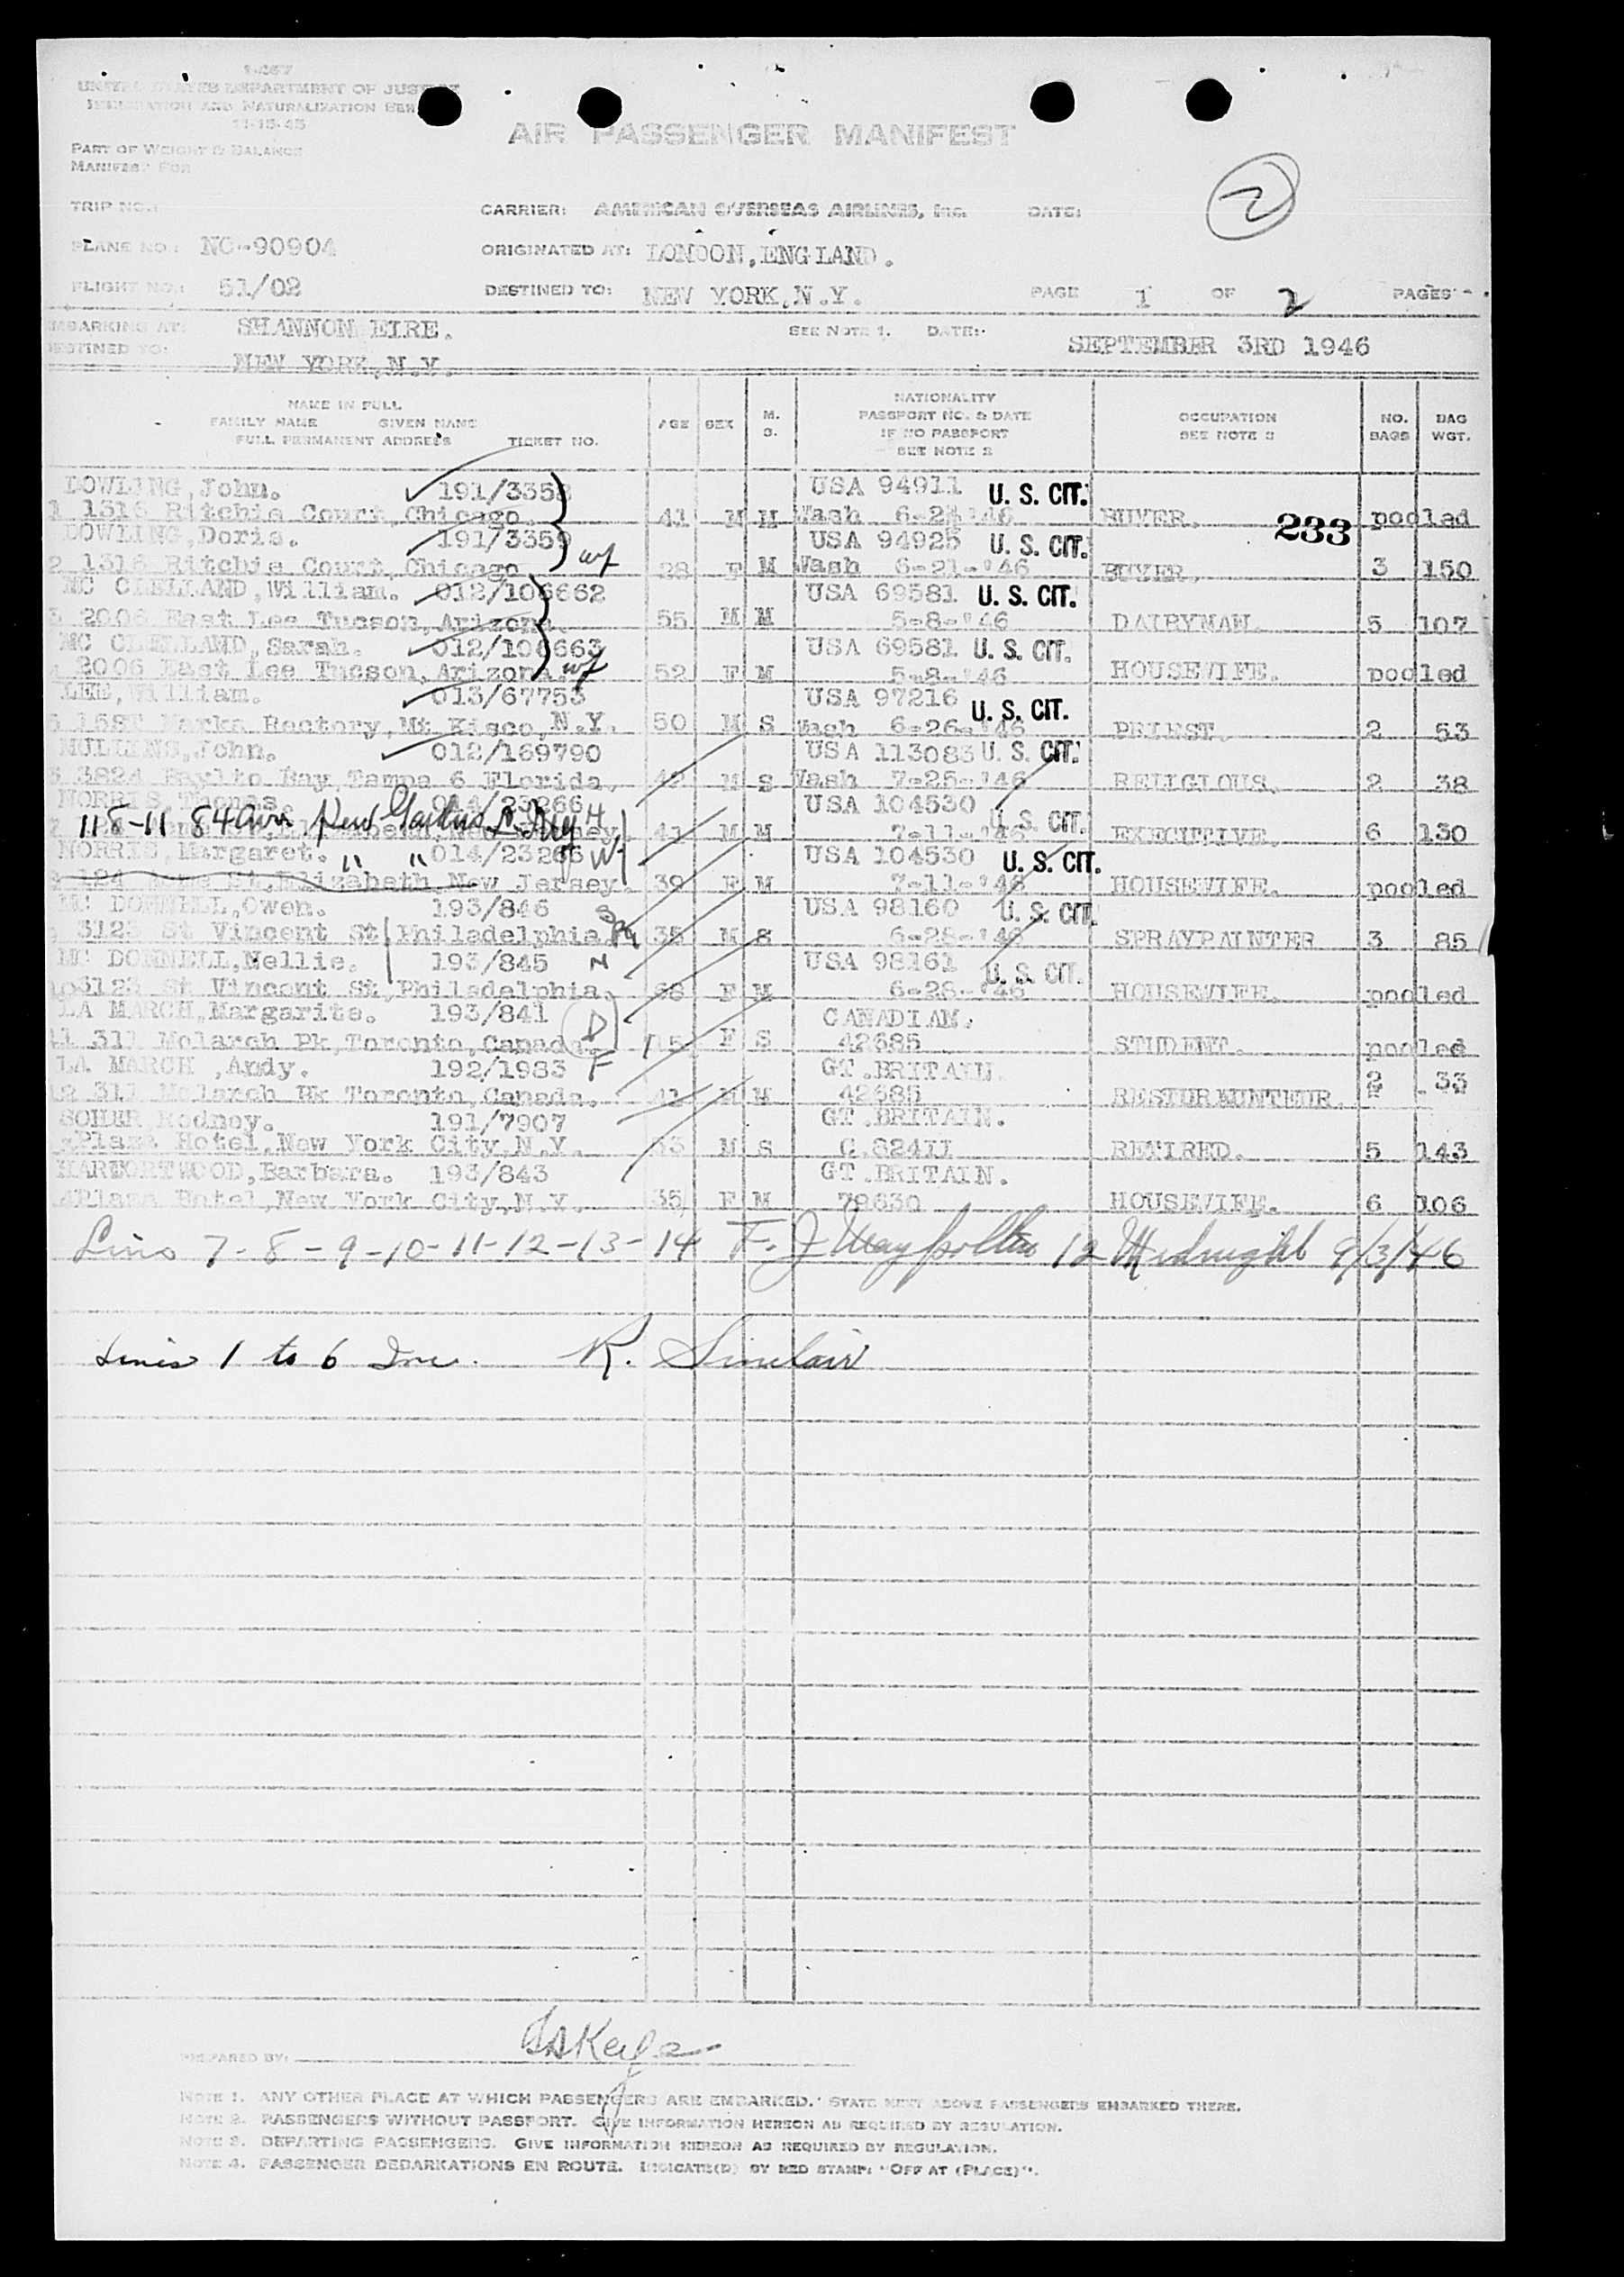 I-467
UNITED STATES DEPARTMENT OF JUSTICE
IMMIGRATION AND NATURALIZATION SER
11-15-45
PART OF WEIGHT & BALANCE
MANIFEST FOR
AIR PASSENGER MANIFEST
2
TRIP NO.:
CARRIER: AMERICAN OVERSEAS AIRLINES, Inc. DATE:
PLANE NO.: NC-90904 ORIGINATED AT: LONDON, ENGLAND.
FLIGHT NO.: 51/02 DESTINED TO: NEW YORK, N.Y. PAGE 1 OF 2 PAGES
EMBARKING AT: SHANNON EIRE. SEE NOTE 1. DATE:
SEPTEMBER 3RD 1946
DESTINED TO: NEW YORK, N.Y.
NAME IN FULL
FAMILY NAME GIVEN NAME
FULL PERMANENT ADDRESS TICKET NO.
AGE SEX M. S.
NATIONALITY
PASSPORT NO. & DATE
IF NO PASSPORT
SEE NOTE 2
OCCUPATION
SEE NOTE 3
NO. BAGS
BAG WGT.
DOWLING, John. 191/3358 USA 94911 U. S. CIT.
1 1316 Ritchie Court, Chicago. 41 M M Wash 6-21-'46 BUYER. 233 pooled
DOWLING, Doris. 191/3359 USA 94925 U. S. CIT.
wf
2 1316 Ritchie Court, Chicago 28 F M Wash 6-21-'46 BUYER. 3 150
MC CLELLAND, William. 012/106662 USA 69581 U. S. CIT.
3 2006 East Lee Tucson, Arizona. 55 M M 5-8-'46 DAIRYMAN. 5 107
MC CLELLAND, Sarah. 012/106663 USA 69581 U. S. CIT.
4 2006 East Lee Tucson, Arizona. wf 52 F M 5-8-'46 HOUSEWIFE. pooled
LEE, William. 013/67753 USA 97216 U. S. CIT.
5 15ST Marks Rectory, Mt Kisco, N.Y. 50 M S Wash 6-26-'46 PRIEST. 2 53
MULLINS, John. 012/169790 USA 113083 U. S. CIT.
6 3824 Bay, Tampa 6 Florida. M S Wash 7-25-'46 RELIGIOUS. 2 38
NORRIS, Thomas. 014/23266 USA 104530 U. S. CIT.
118-11 84 Ave Kew Gardens N.Y. H
41 M M 7-11-'46 EXECUTIVE. 6 130
NORRIS, Margaret. " " 014/23265 W USA 104530 U. S. CIT.
124 St, Elizabeth, New Jersey. 39 F M 7-11-'46 HOUSEWIFE. pooled
MC DONNELL, Owen. 193/846 USA 98160 U. S. CIT.
3123 St Vincent St Philadelphia 35 M S 6-28-'46 SPRAYPAINTER 3 85
MC DONNELL, Nellie. 193/845 M USA 98161 U. S. CIT.
10 3123 St Vincent St, Philadelphia. 68 F M 6-28-'46 HOUSEWIFE. pooled
LA MARCH, Margarite. 193/841 D CANADIAN.
11 311 Melarch Pk, Toronto, Canada. 15 F S 42685 STUDENT. pooled
LA MARCH , Andy. 192/1983 F GT. BRITAIN.
12 311 Melarch Pk Toronto, Canada. 41 M M 42685 RESTURAUNTEUR. 2 33
SOHER Rodney. 191/7907 GT. BRITAIN.
Plaza Hotel, New York City, N.Y. 53 M S C.82411 RETIRED. 5 143
HARWORTWOOD, Barbara. 193/843 GT. BRITAIN.
Plaza Hotel, New York City, N.Y. 35 F M 79630 HOUSEWIFE. 6 106
Lines 7-8-9-10-11-12-13-14 F. J. 12 Midnight 9/3/46
Lines 1 to 6 Inc. R. Sinclair
PREPARED BY:
NOTE 1. ANY OTHER PLACE AT WHICH PASSENGERS ARE EMBARKED. STATE NEXT ABOVE PASSENGERS EMBARKED THERE.
NOTE 2. PASSENGERS WITHOUT PASSPORT. GIVE INFORMATION HEREON AS REQUIRED BY REGULATION.
NOTE 3. DEPARTING PASSENGERS. GIVE INFORMATION HEREON AS REQUIRED BY REGULATION.
NOTE 4. PASSENGER DEBARKATIONS EN ROUTE. INDICATE(D) BY RED STAMP: "OFF AT (PLACE)".